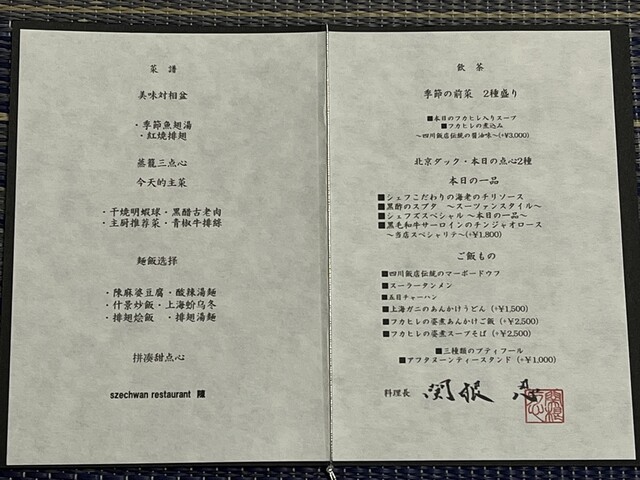 菜譜
美味対相盆
・季節魚翅湯
・紅焼排翅
蒸籠三点心
今天的主菜
・干焼明蝦球・黒醋古老肉
・主厨推荐菜・青椒牛排絲
麺飯选择
・陳麻婆豆腐・酸辣湯麺
・什景炒飯・上海蚧乌冬
・排翅烩飯 ・排翅湯麺
拼凑甜点心
szechwan restaurant 陳
飲茶
季節の前菜 2種盛り
■本日のフカヒレ入りスープ
■フカヒレの煮込み
～四川飯店伝統の醤油味～(+¥3,000)
北京ダック・本日の点心2種
本日の一品
■シェフこだわりの海老のチリソース
■黒酢のスブタ ～スーツァンスタイル～
■シェフズスペシャル ～本日の一品～
■黒毛和牛サーロインのチンジャオロース
～当店スペシャリテ～(+¥1,800)
ご飯もの
■四川飯店伝統のマーボードウフ
■スーラータンメン
■五目チャーハン
■上海ガニのあんかけうどん (+¥1,500)
■フカヒレの姿煮あんかけご飯 (+¥2,500)
■フカヒレの姿煮スープそば (+¥2,500)
■三種類のプティフール
■アフタヌーンティースタンド (+¥1,000)
料理長 関根 忍